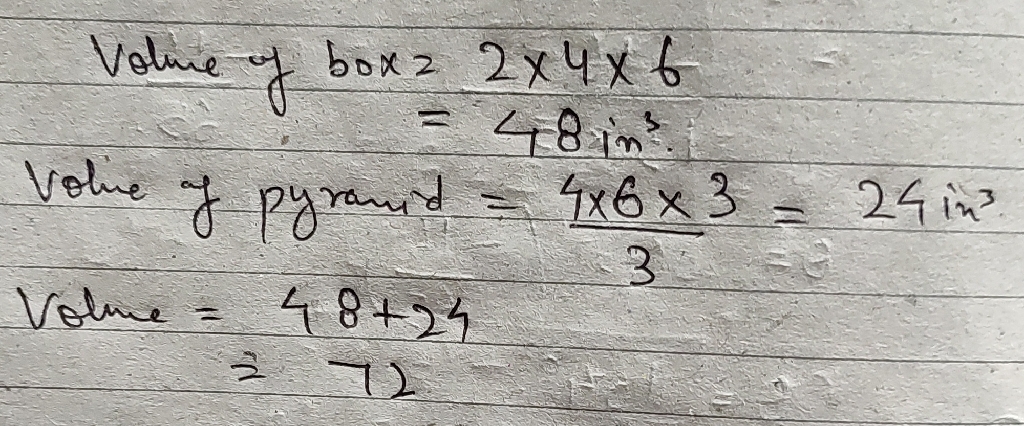 Volume of box = 2x4x6
= 48 in³.
Volume of pyramid = 4x6x3/3 = 24 in³.
Volume = 48+24
= 72